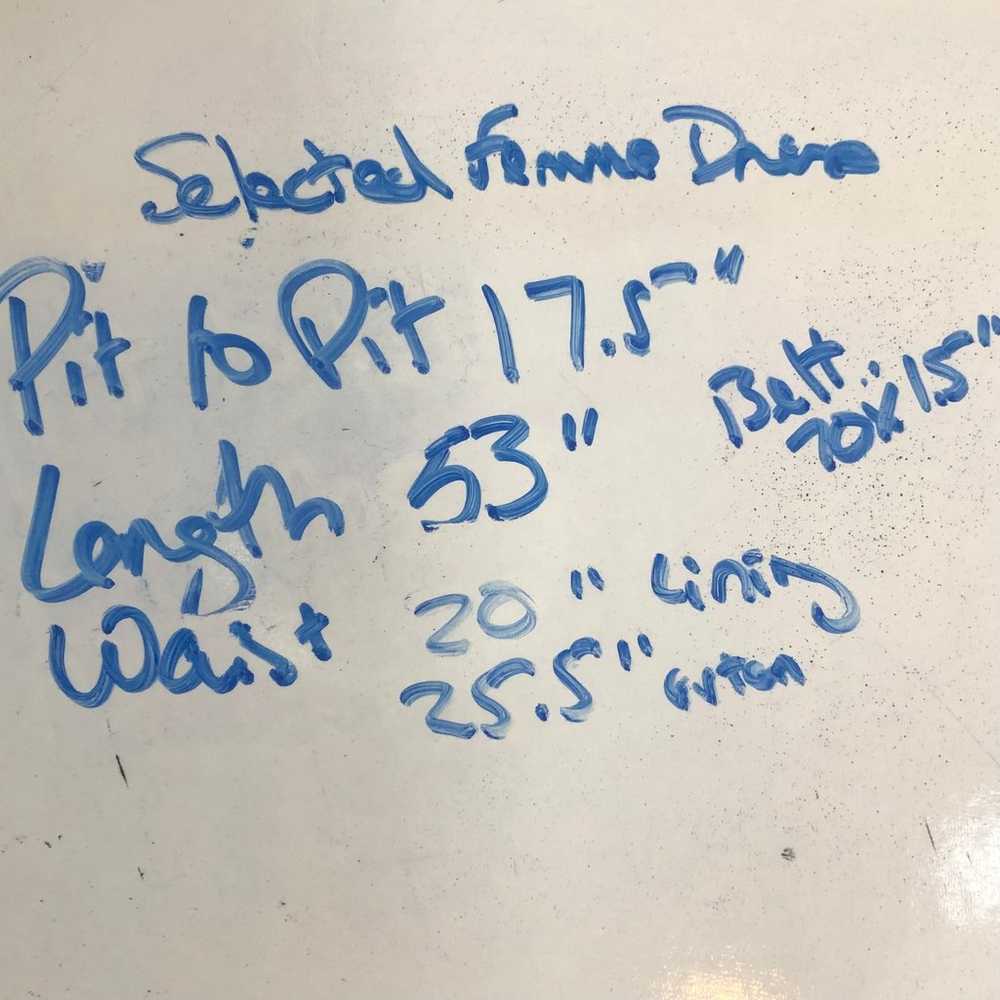 Selected Femme Dress
Pit to Pit 17.5"
Belt 70 x 1.5"
Length 53"
Waist 20" Lining
25.5"